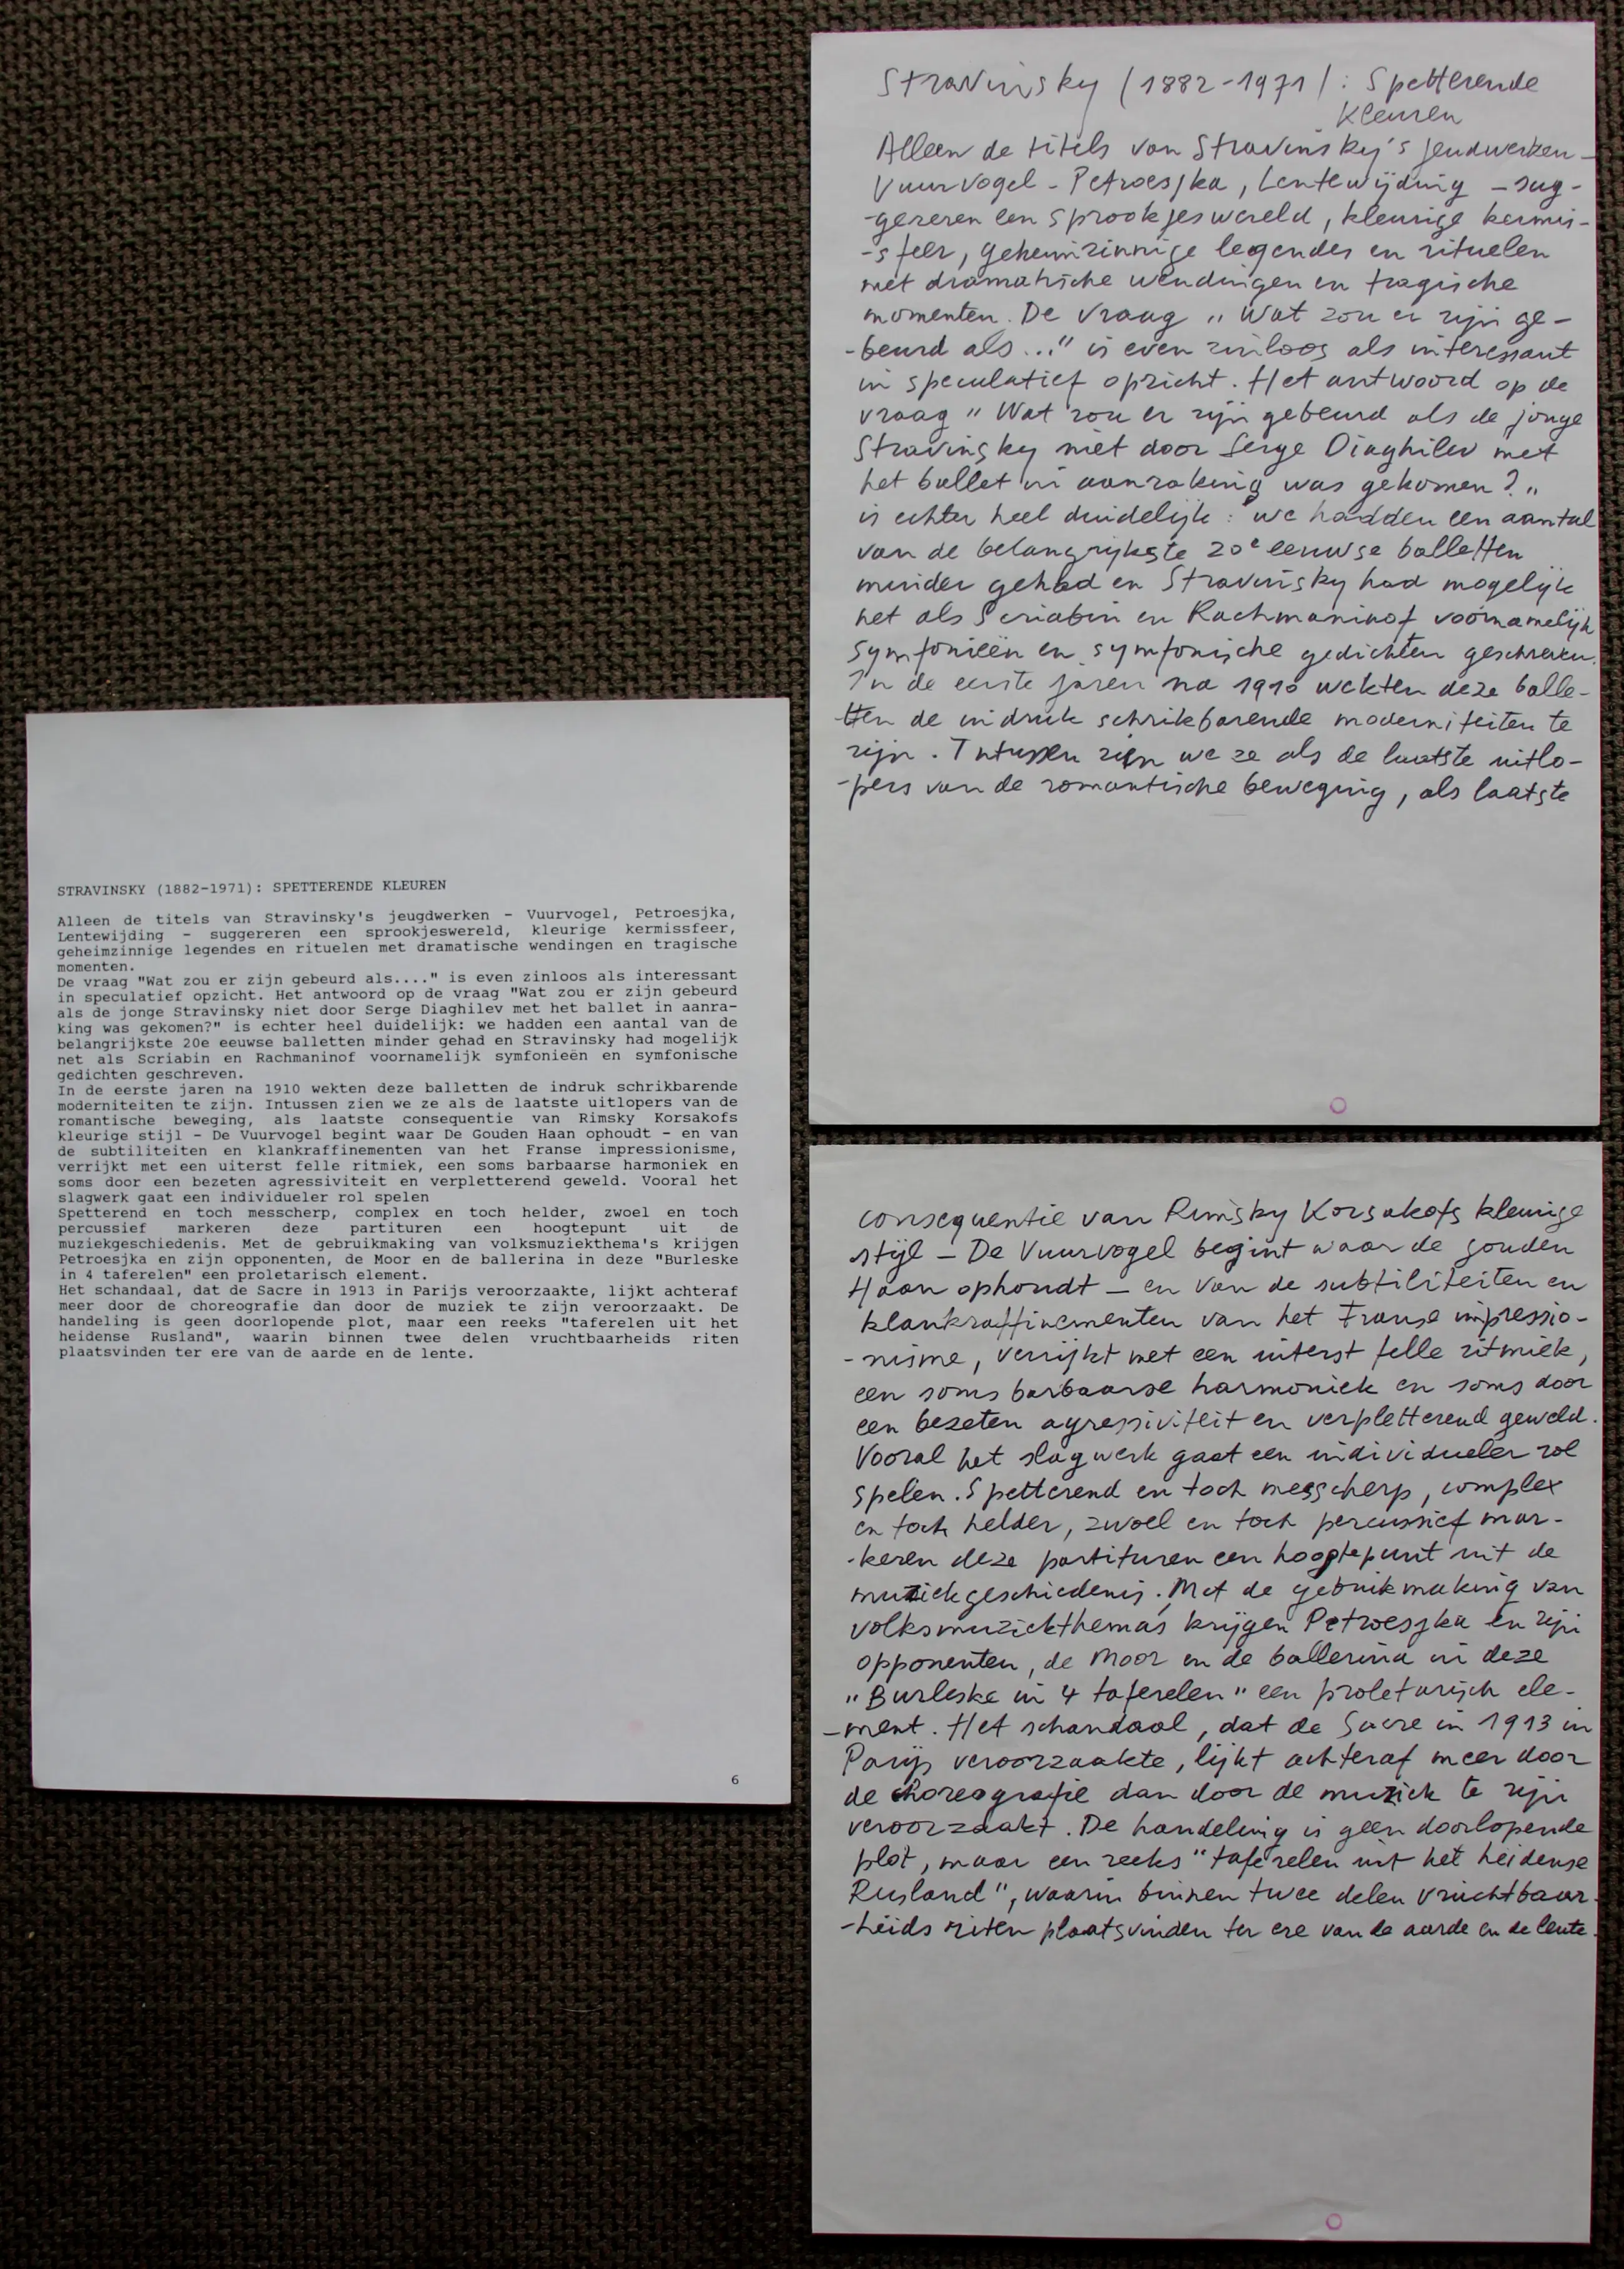 STRAVINSKY (1882-1971): SPETTERENDE KLEUREN
Alleen de titels van Stravinsky's jeugdwerken - Vuurvogel, Petroesjka,
Lentewijding - suggereren een sprookjeswereld, kleurige kermissfeer,
geheimzinnige legendes en rituelen met dramatische wendingen en tragische
momenten.
De vraag "Wat zou er zijn gebeurd als...." is even zinloos als interessant
in speculatief opzicht. Het antwoord op de vraag "Wat zou er zijn gebeurd
als de jonge Stravinsky niet door Serge Diaghilev met het ballet in aanra-
king was gekomen?" is echter heel duidelijk: we hadden een aantal van de
belangrijkste 20e eeuwse balletten minder gehad en Stravinsky had mogelijk
net als Scriabin en Rachmaninof voornamelijk symfonieën en symfonische
gedichten geschreven.
In de eerste jaren na 1910 wekten deze balletten de indruk schrikbarende
moderniteiten te zijn. Intussen zien we ze als de laatste uitlopers van de
romantische beweging, als laatste consequentie van Rimsky Korsakofs
kleurige stijl - De Vuurvogel begint waar De Gouden Haan ophoudt - en van
de subtiliteiten en klankraffinementen van het Franse impressionisme,
verrijkt met een uiterst felle ritmiek, een soms barbaarse harmoniek en
soms door een bezeten agressiviteit en verpletterend geweld. Vooral het
slagwerk gaat een individueler rol spelen
Spetterend en toch messcherp, complex en toch helder, zwoel en toch
percussief markeren deze partituren een hoogtepunt uit de
muziekgeschiedenis. Met de gebruikmaking van volksmuziekthema's krijgen
Petroesjka en zijn opponenten, de Moor en de ballerina in deze "Burleske
in 4 taferelen" een proletarisch element.
Het schandaal, dat de Sacre in 1913 in Parijs veroorzaakte, lijkt achteraf
meer door de choreografie dan door de muziek te zijn veroorzaakt. De
handeling is geen doorlopende plot, maar een reeks "taferelen uit het
heidense Rusland", waarin binnen twee delen vruchtbaarheids riten
plaatsvinden ter ere van de aarde en de lente.
6
Stravinsky (1882-1971): Spetterende
Kleuren
Alleen de titels van Stravinsky's jeudwerken -
Vuurvogel - Petroesjka, Lentewijding - sug-
-gereren een sprookjeswereld, kleurige kermis-
-sfeer, geheimzinnige legendes en rituelen
met dramatische wendingen en tragische
momenten. De vraag „Wat zou er zijn ge-
-beurd als..." is even zinloos als interessant
in speculatief opzicht. Het antwoord op de
vraag „Wat zou er zijn gebeurd als de jonge
Stravinsky niet door Serge Diaghilev met
het ballet in aanraking was gekomen?"
is echter heel duidelijk: we hadden een aantal
van de belangrijkste 20e eeuwse balletten
minder gehad en Stravinsky had mogelijk
net als Scriabin en Rachmaninof voornamelijk
symfonieën en symfonische gedichten geschreven.
In de eerste jaren na 1910 wekten deze balle-
-tten de indruk schrikbarende moderniteiten te
zijn. Intussen zien we ze als de laatste uitlo-
-pers van de romantische beweging, als laatste
consequentie van Rimsky Korsakofs kleurige
stijl - De Vuurvogel begint waar de gouden
Haan ophoudt - en van de subtiliteiten en
klankraffinementen van het Franse impressio-
-nisme, verrijkt met een uiterst felle ritmiek,
een soms barbaarse harmoniek en soms door
een bezeten agressiviteit en verpletterend geweld.
Vooral het slagwerk gaat een individueler rol
spelen. Spetterend en toch messcherp, complex
en toch helder, zwoel en toch percussief mar-
-keren deze partituren een hoogtepunt uit de
muziekgeschiedenis. Met de gebruikmaking van
volksmuziekthema's krijgen Petroesjka en zijn
opponenten, de Moor en de ballerina in deze
„Burleske in 4 taferelen" een proletarisch ele-
-ment. Het schandaal, dat de Sacre in 1913 in
Parijs veroorzaakte, lijkt achteraf meer door
de choreografie dan door de muziek te zijn
veroorzaakt. De handeling is geen doorlopende
plot, maar een reeks "taferelen uit het heidense
Rusland", waarin binnen twee delen vruchtbaar-
-heids riten plaatsvinden ter ere van de aarde en de lente.